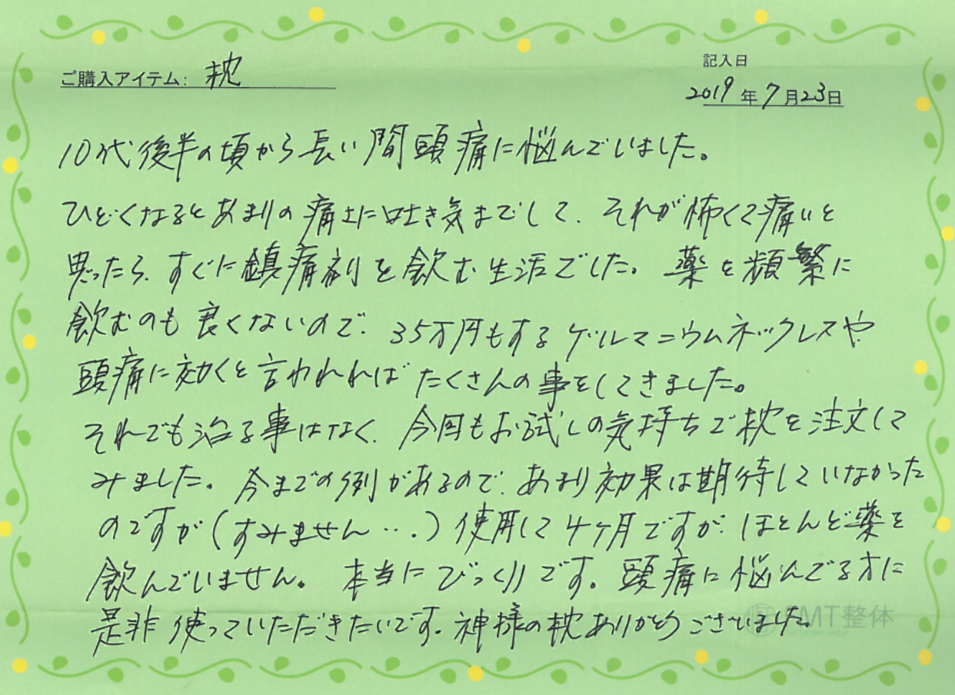 ご購入アイテム: 枕
記入日
2019年7月23日
10代後半の頃から長い間頭痛に悩んでいました。
ひどくなるとあまりの痛さに吐き気までして、それが怖くて痛いと
思ったら、すぐに鎮痛剤を飲む生活でした。薬を頻繁に
飲むのも良くないので、35万円もするゲルマニウムネックレスや
頭痛に効くと言われればたくさんの事をしてきました。
それでも治る事はなく、今回もお試しの気持ちで枕を注文して
みました。今までの例があるので、あまり効果は期待していなかった
のですが(すみません…)使用して4ヶ月ですが、ほとんど薬を
飲んでいません。本当にびっくりです。頭痛に悩んでる方に
是非使っていただきたいです。神様の枕ありがとうございました。
MT整体